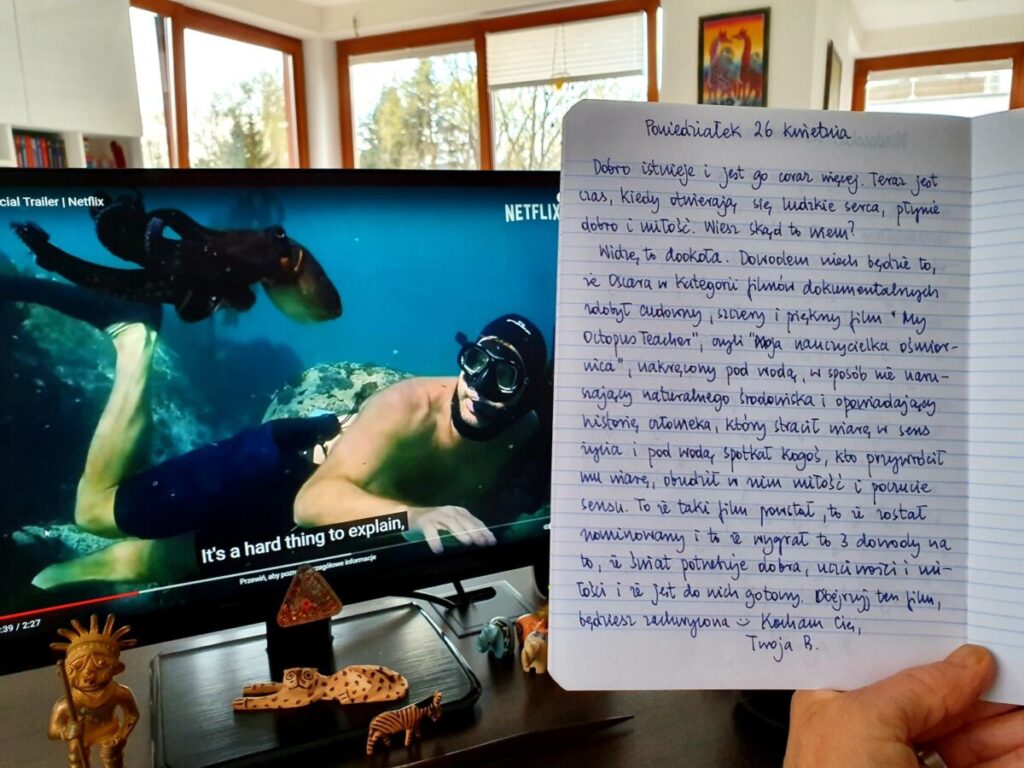 cial Trailer | Netflix
NETFLIX
It's a hard thing to explain,
Przewiń, aby poznać szczegółowe informacje
:39 / 2:27
Poniedziałek 26 kwietnia
Dobro istnieje i jest go coraz więcej. Teraz jest
czas, kiedy otwierają się ludzkie serca, płynie
dobro i miłość. Wiesz skąd to wiem?
Widzę to dookoła. Dowodem niech będzie to,
że Oscara w kategorii filmów dokumentalnych
zdobył cudowny, szczery i piękny film "My
Octopus Teacher", czyli "Moja nauczycielka ośmior-
nica", nakręcony pod wodą, w sposób nie naru-
szający naturalnego środowiska i opowiadający
historię człowieka, który stracił wiarę w sens
życia i pod wodą spotkał kogoś, kto przywrócił
mu wiarę, obudził w nim miłość i poczucie
sensu. To że taki film powstał, to że został
nominowany i to że wygrał to 3 dowody na
to, że świat potrzebuje dobra, uczciwości i mi-
łości i że jest do nich gotowy. Obejrzyj ten film,
będziesz zachwycona Kocham Cię,
Twoja B.